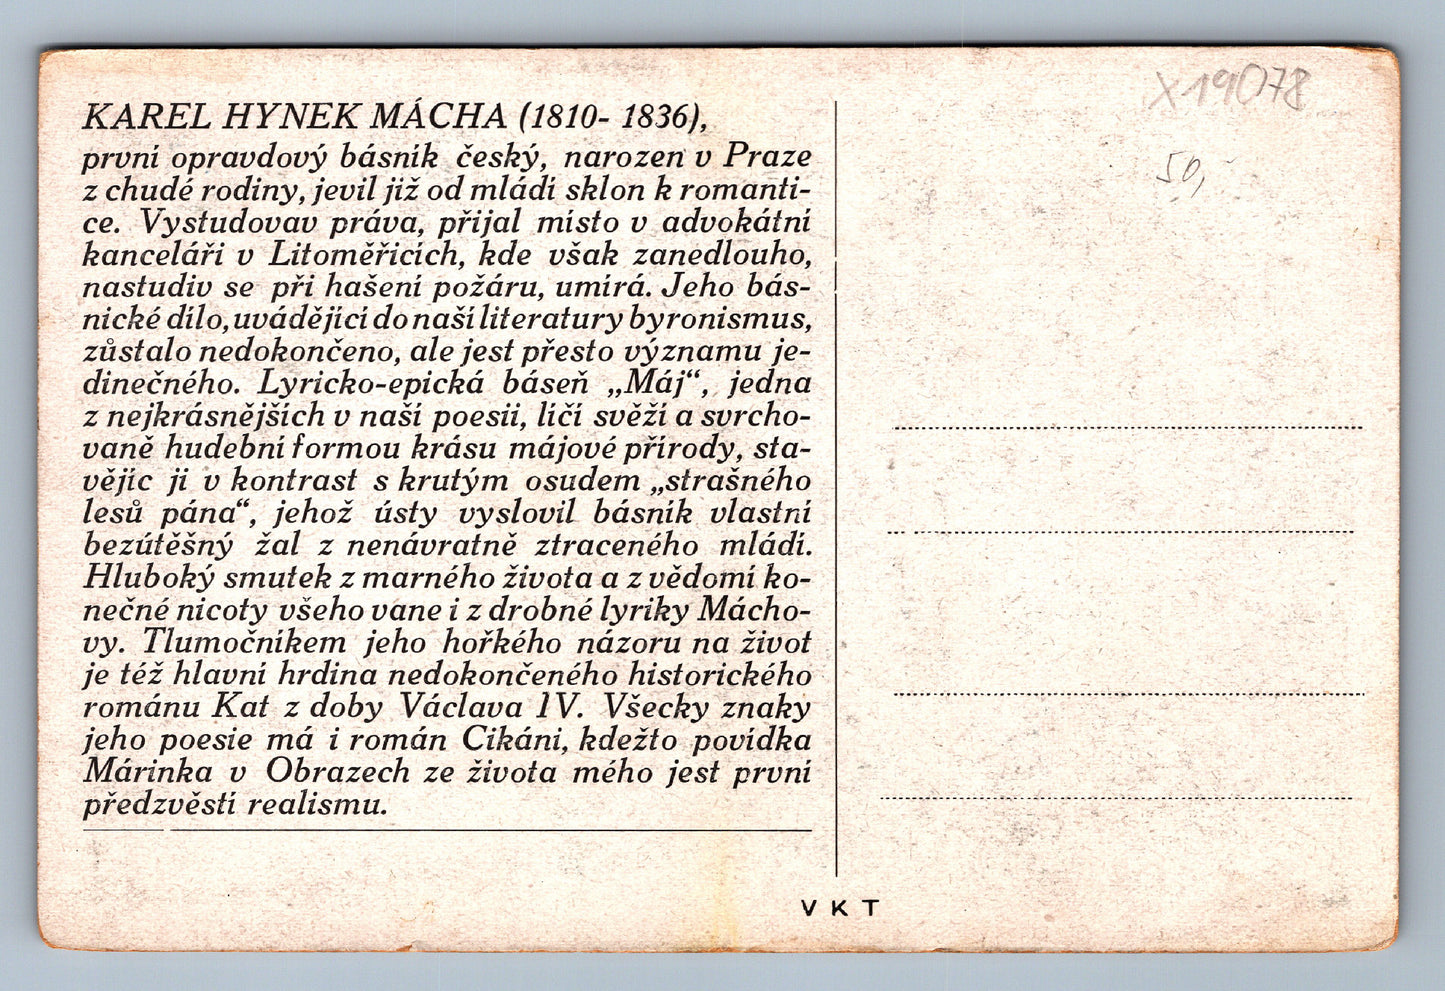 KAREL HYNEK MÁCHA (1810- 1836),
první opravdový básník český, narozen v Praze
z chudé rodiny, jevil již od mládí sklon k romanti-
ce. Vystudovav práva, přijal místo v advokátní
kanceláři v Litoměřicích, kde však zanedlouho,
nastudiv se při hašení požáru, umírá. Jeho bás-
nické dílo, uvádějící do naší literatury byronismus,
zůstalo nedokončeno, ale jest přesto významu je-
dinečného. Lyricko-epická báseň „Máj“, jedna
z nejkrásnějších v naší poesii, líčí svěží a svrcho-
vaně hudební formou krásu májové přírody, sta-
vějíc ji v kontrast s krutým osudem „strašného
lesů pána“, jehož ústy vyslovil básník vlastní
bezútěšný žal z nenávratně ztraceného mládí.
Hluboký smutek z marného života a z vědomí ko-
nečné nicoty všeho vane i z drobné lyriky Mácho-
vy. Tlumočníkem jeho hořkého názoru na život
je též hlavní hrdina nedokončeného historického
románu Kat z doby Václava IV. Všecky znaky
jeho poesie má i román Cikáni, kdežto povídka
Márinka v Obrazech ze života mého jest první
předzvěstí realismu.
X19078
50,-
V K T